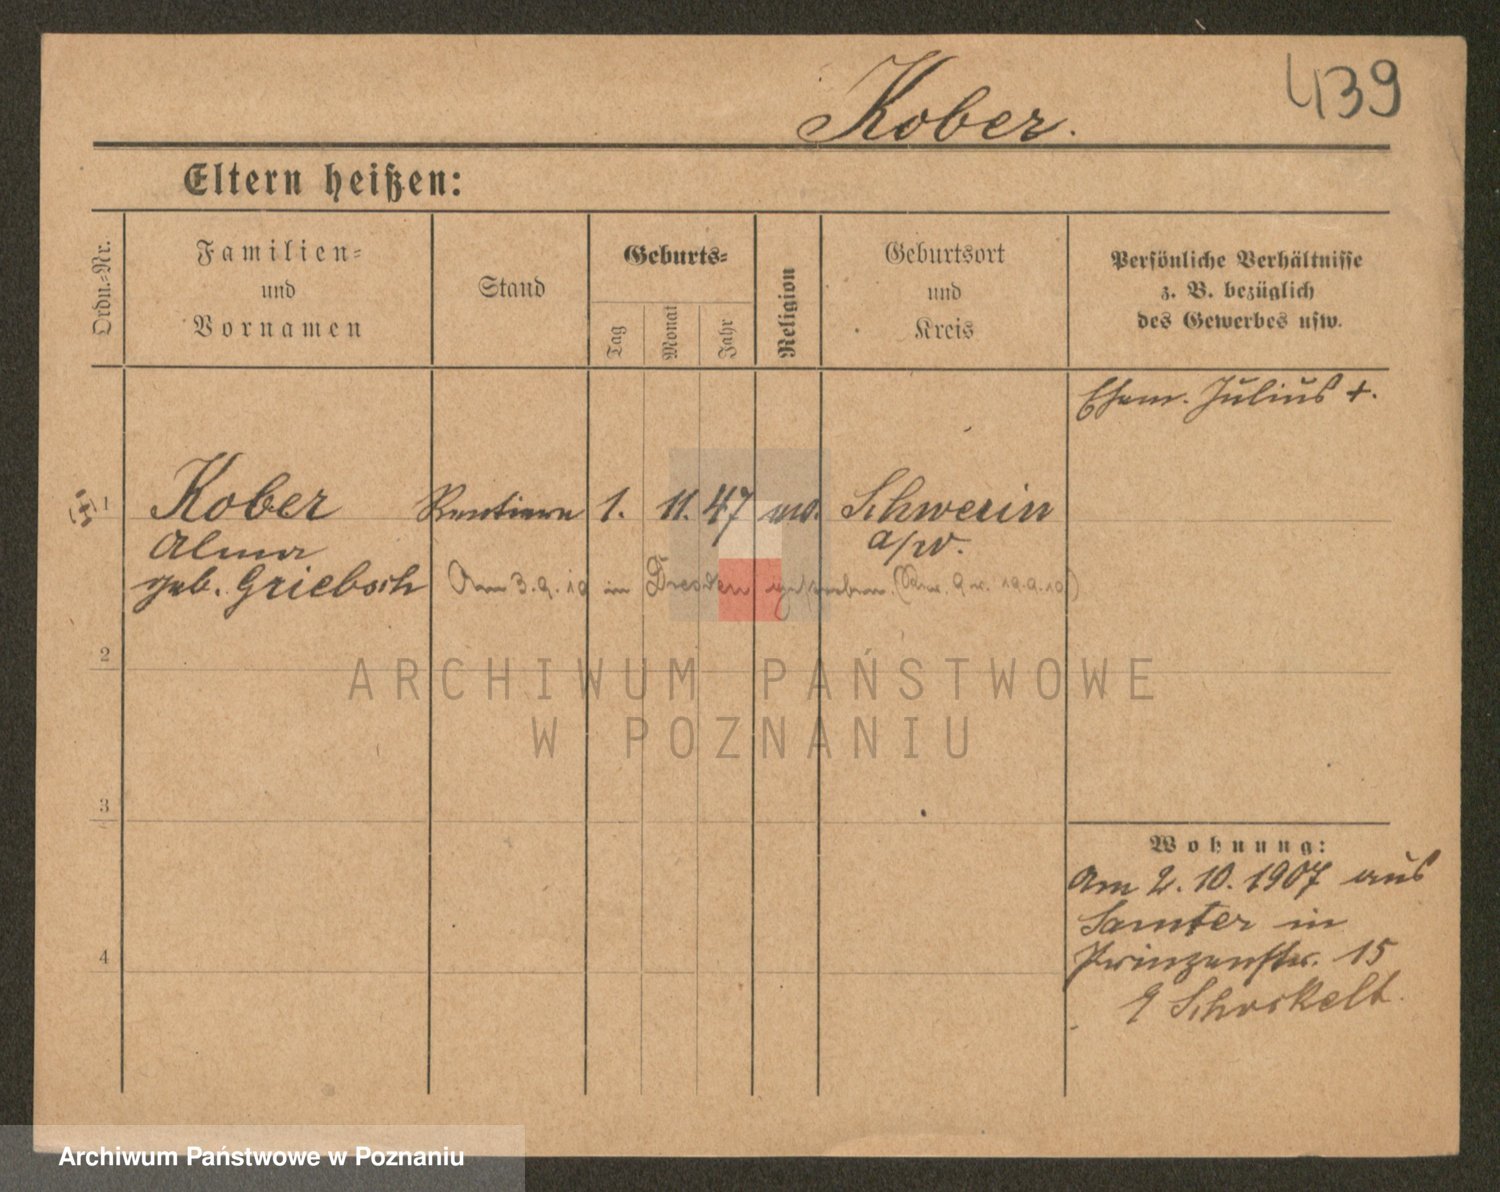 439
Kober.
Eltern heißen:
Ordn.-Nr.
Familien-
und
Vornamen
Stand
Geburts-
Tag
Monat
Jahr
Religion
Geburtsort
und
Kreis
Persönliche Verhältnisse
z. B. bezüglich
des Gewerbes usw.
Ehem. Julius +.
1 Kober Rentiere 1. 11. 47 Schwerin
Alma a/W.
geb. Griebsch Am 3.9.19 in Dresden gestorben.
2
ARCHIWUM PAŃSTWOWE
W POZNANIU
3
Wohnung:
Am 2.10.1907 aus
Samter in
Prinzenstr. 15
4
Archiwum Państwowe w Poznaniu